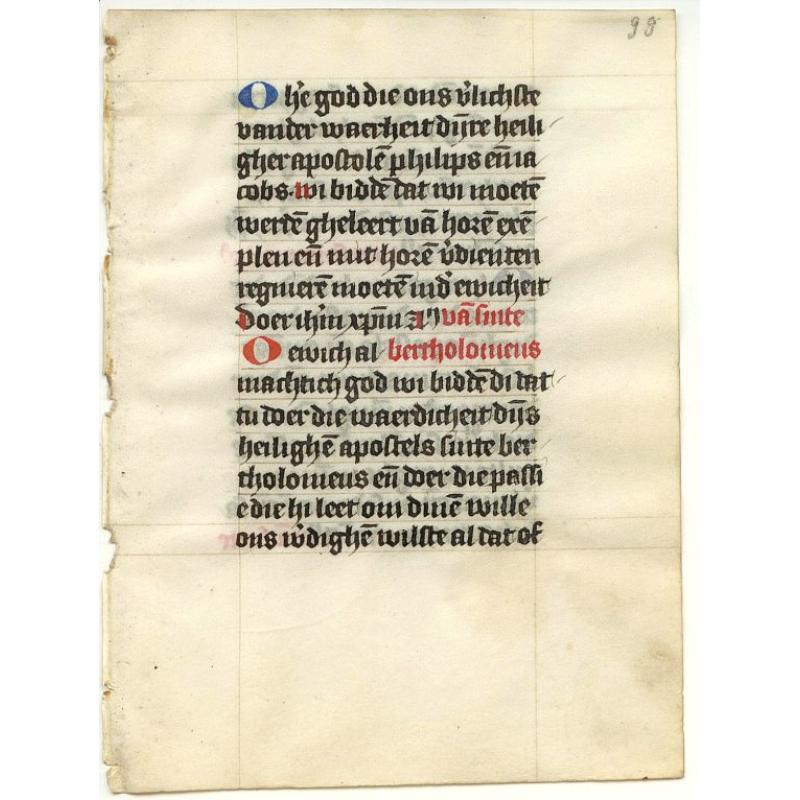 99
O h'e god die ons v'lichste
vander waerheit dijre heili
gher apostolē philips eñ ia
cobs. wi biddē dat wi moetē
werdē gheleert vā horē exē
plen eñ mit horē v'dienten
regnierē moetē in d' ewicheit
Doer ih'm xpm̄ vā sinte
O ewich al bertholomeus
machtich god wi biddē di dat
tu doer die waerdicheit dijs
heilighē apostels sinte ber
tholomeus eñ doer die passi
e die hi leet om dinē wille
ons w'dighē wilste al dat of